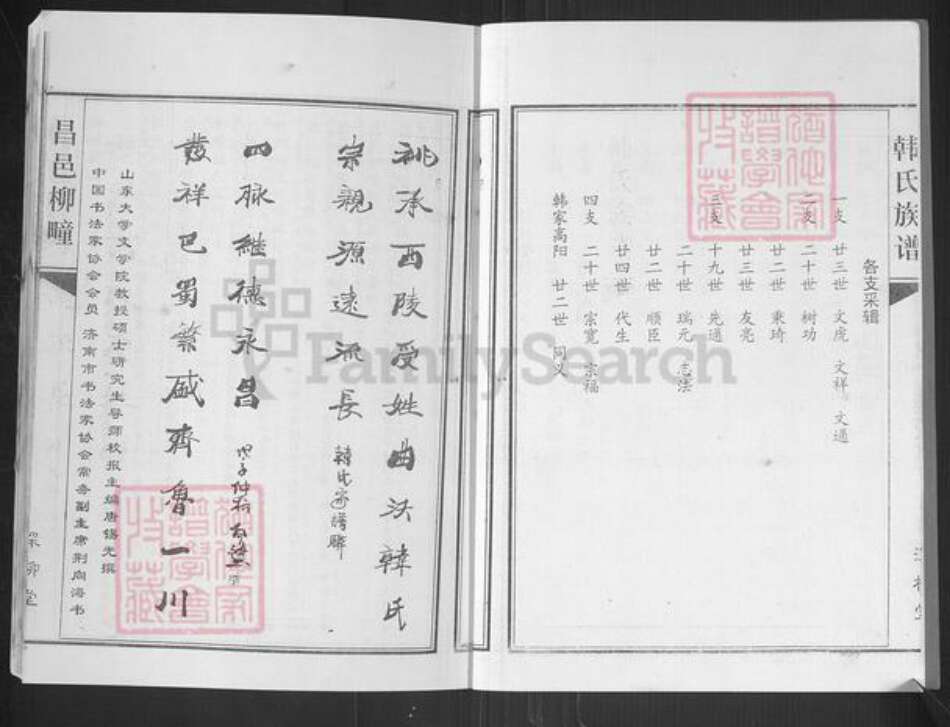 韩氏族谱
各支采辑
一支 廿三世 文虎 文祥 文通
二支 二十世 树功
廿二世 秉琦
廿三世 友亮
三支 十九世 先通
二十世 瑞元 志法
廿二世 顺臣
廿四世 代生
四支 二十世 宗宽 宗福
韩家高阳 廿二世 同义
祧承西陵受姓曲沃韩氏
宗亲源远流长
韩氏家谱联
四脉继德永昌
戊子仲秋
发祥巴蜀繁盛齐鲁一川
山东大学文学院教授硕士研究生导师校报主编唐锡光撰
中国书法家协会会员 济南市书法家协会常务副主席荆向海书
昌邑柳疃
FamilySearch